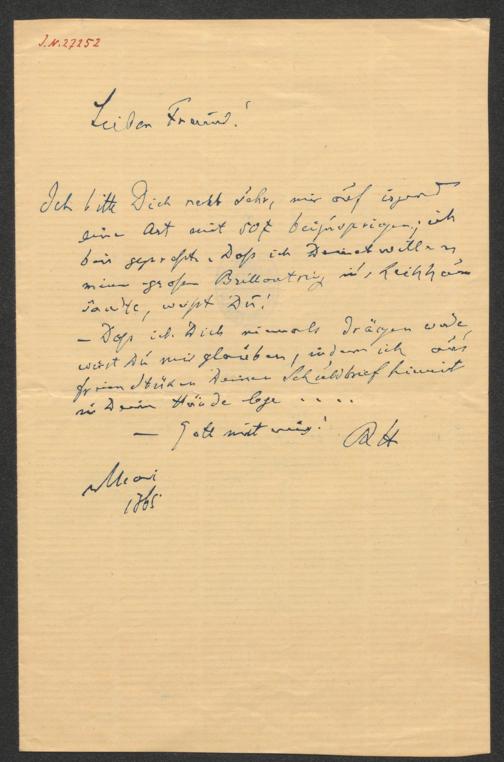 J.N. 27252
Lieber Freund!
Ich bitte Dich recht sehr, mir auf irgend
eine Art mit 50 beizuspringen; ich
bin gepresst. Daß ich Deinetwillen
meinen großen Brillantring in's Leihhaus
sandte, weißt Du!
– Daß ich Dich niemals drängen werde,
wirst Du mir glauben, indem ich aus
freien Stücken Deinen Schuldbrief hiemit
in Deine Hände lege . . . .
– Gott mit uns!
Mai